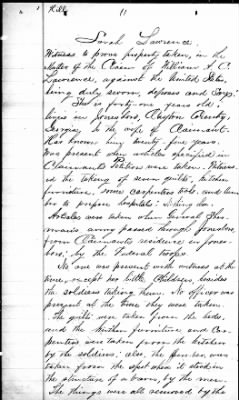 Sarah Lawrence.
Witness to prove property taken, in the
Matter of the Claim of William A. C.
Lawrence, against the United States,
being duly sworn, deposes and says:
She is forty-one years old;
lives in Jonesboro, Clayton County,
Georgia, is the wife of Claimant.
Has known him twenty-five years.
Was present when articles specified in
Claimant's Petition were taken. Witness
ed the taking of seven quilts, kitchen
furniture, some carpenters tools, and lum
ber to prepare hospitals:
Articles were taken when General Sher
man's army passed through Jonesboro,
from Claimant's residence in Jones
boro; by the Federal troops.
No one was present with witness at the
time, except her little Children, besides
the soldiers taking them. No officer was
present at the time they were taken.
The quilts were taken from the beds,
and the kitchen furniture and Car-
penters were taken from the kitchen
by the soldiers; also, the lumber was
taken from the spot where it stood in
the structure of a barn, by the men.
The things were all removed by the